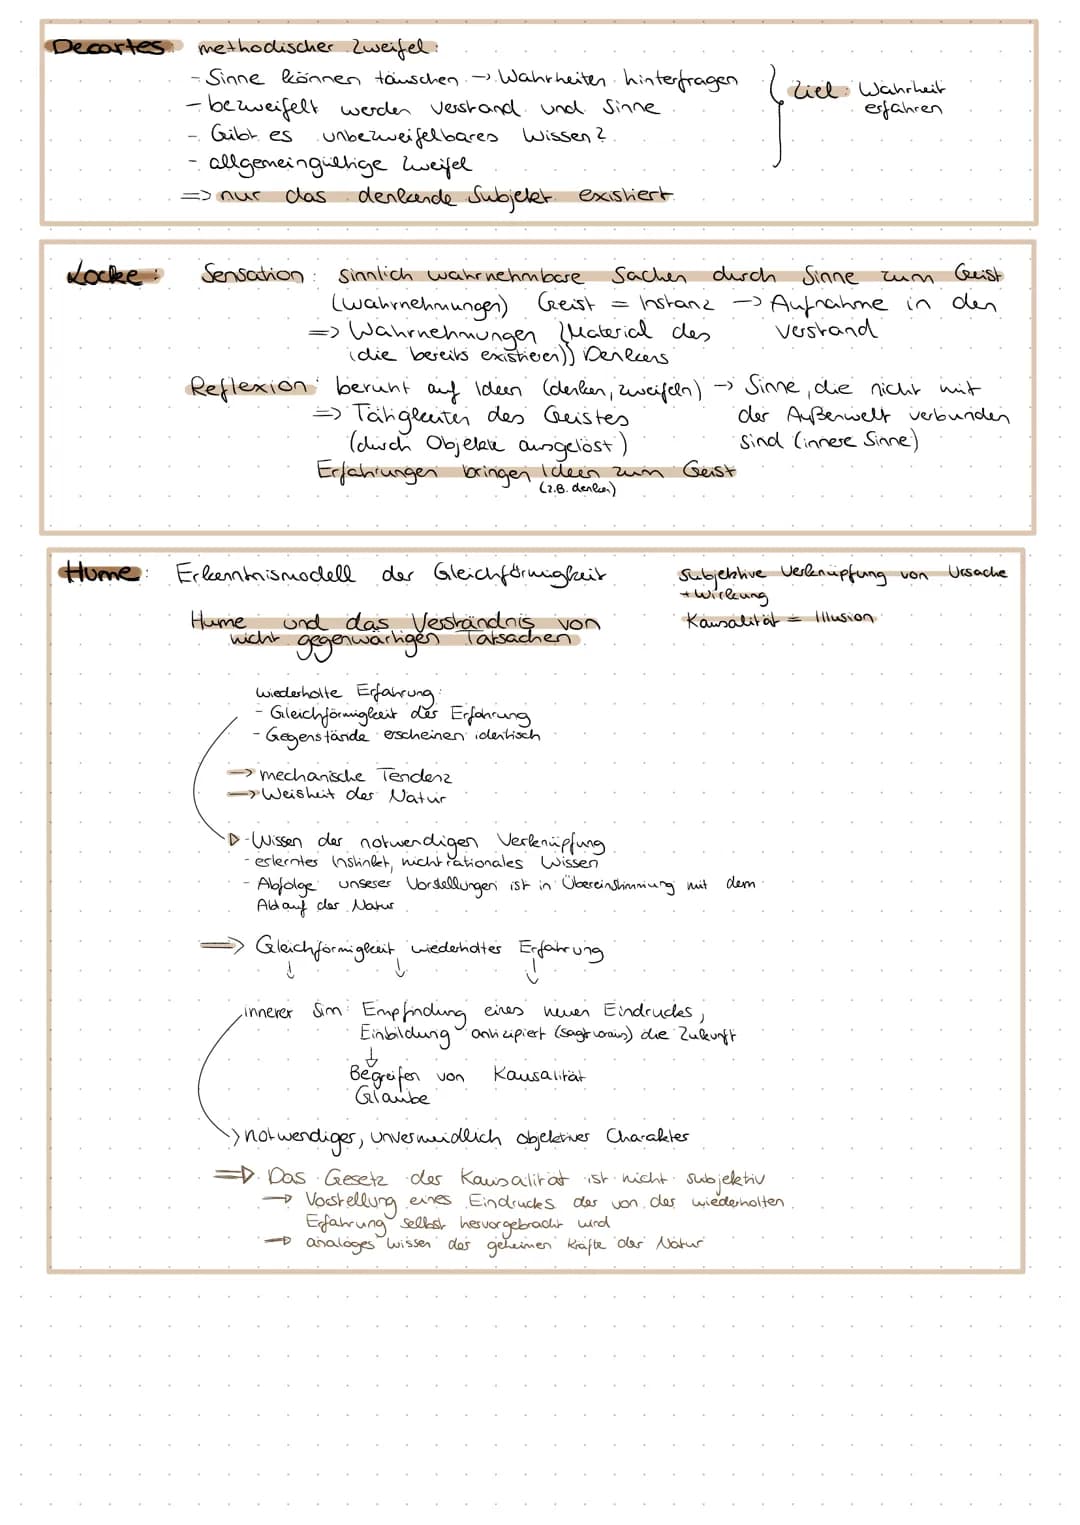 Decartes: methodischer Zweifel:
- Sinne können täuschen → Wahrheiten hinterfragen
- bezweifelt werden Verstand und Sinne
- Gibt es unbezweifelbares Wissen?
- allgemeingültige Zweifel
Ziel: Wahrheit
erfahren
=> nur das denkende Subjekt existiert
Locke: Sensation: sinnlich wahrnehmbare Sachen durch Sinne zum Geist
(Wahrnehmungen) Geist = Instanz → Aufnahme in den
Verstand
=> Wahrnehmungen (Material des
(die bereits existieren)) Denkens
Reflexion: beruht auf Ideen (denken, zweifeln) → Sinne, die nicht mit
der Außenwelt verbunden
sind (innere Sinne)
=> Tätigkeiten des Geistes
(durch Objekte ausgelöst)
Erfahrungen bringen Ideen zum Geist
(z.B. denken)
Hume: Erkenntnismodell der Gleichförmigkeit
Subjektive Verknüpfung von Ursache
+ Wirkung
Kausalität = Illusion
Hume und das Verständnis von
nicht gegenwärtigen Tatsachen
wiederholte Erfahrung:
- Gleichförmigkeit der Erfahrung
- Gegenstände erscheinen identisch
→ mechanische Tendenz
→ Weisheit der Natur
- Wissen der notwendigen Verknüpfung
- erlerntes Instinkt, nicht rationales Wissen
- Abfolge unserer Vorstellungen ist in Übereinstimmung mit dem
Ablauf der Natur
=> Gleichförmigkeit wiederholter Erfahrung
↓ ↓ ↓
innerer Sinn: Empfindung eines neuen Eindruckes,
Einbildung antizipiert (sagt voraus) die Zukunft
↓
Begreifen von Kausalität
Glaube
notwendiger, unvermeidlich objektiver Charakter
=> Das Gesetz der Kausalität ist nicht subjektiv
→ Vorstellung eines Eindrucks der von der wiederholten
Erfahrung selbst hervorgebracht wird
→ analoges Wissen der geheimen Kräfte der Natur